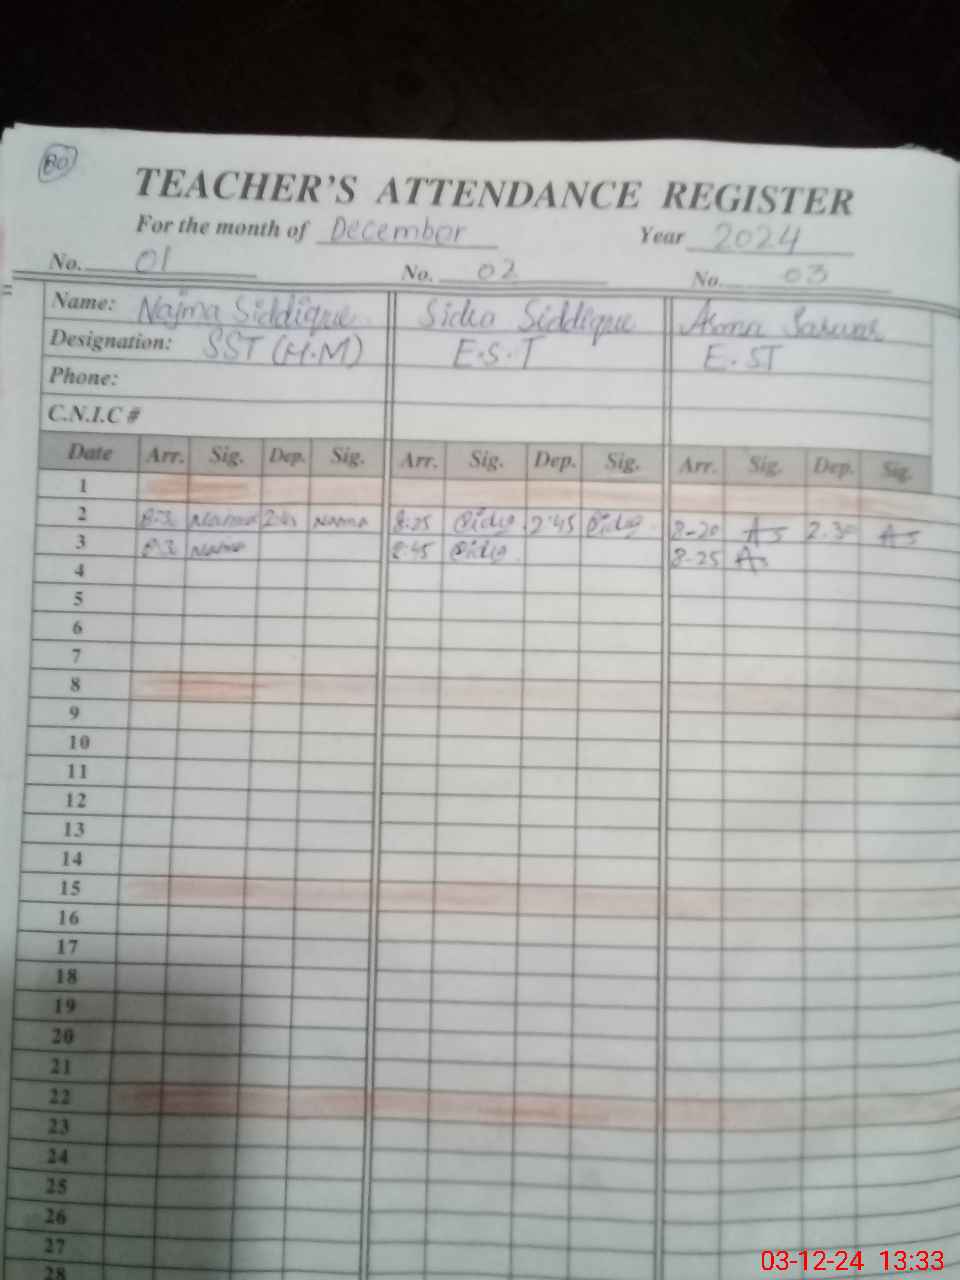 80
TEACHER'S ATTENDANCE REGISTER
For the month of December Year 2024
No. 01 No. 02 No. 03
Name: Najma Siddique Siddique Asma
Designation: SST (H.M) E.S.T E.ST
Phone:
C.N.I.C #
Date Arr. Sig. Dep. Sig. Arr. Sig. Dep. Sig. Arr. Sig. Dep. Sig.
1
2 8:25 2:45 8-20 As 2.30 As
3 8:45 8-25 As
4
5
6
7
8
9
10
11
12
13
14
15
16
17
18
19
20
21
22
23
24
25
26
27
28
03-12-24 13:33